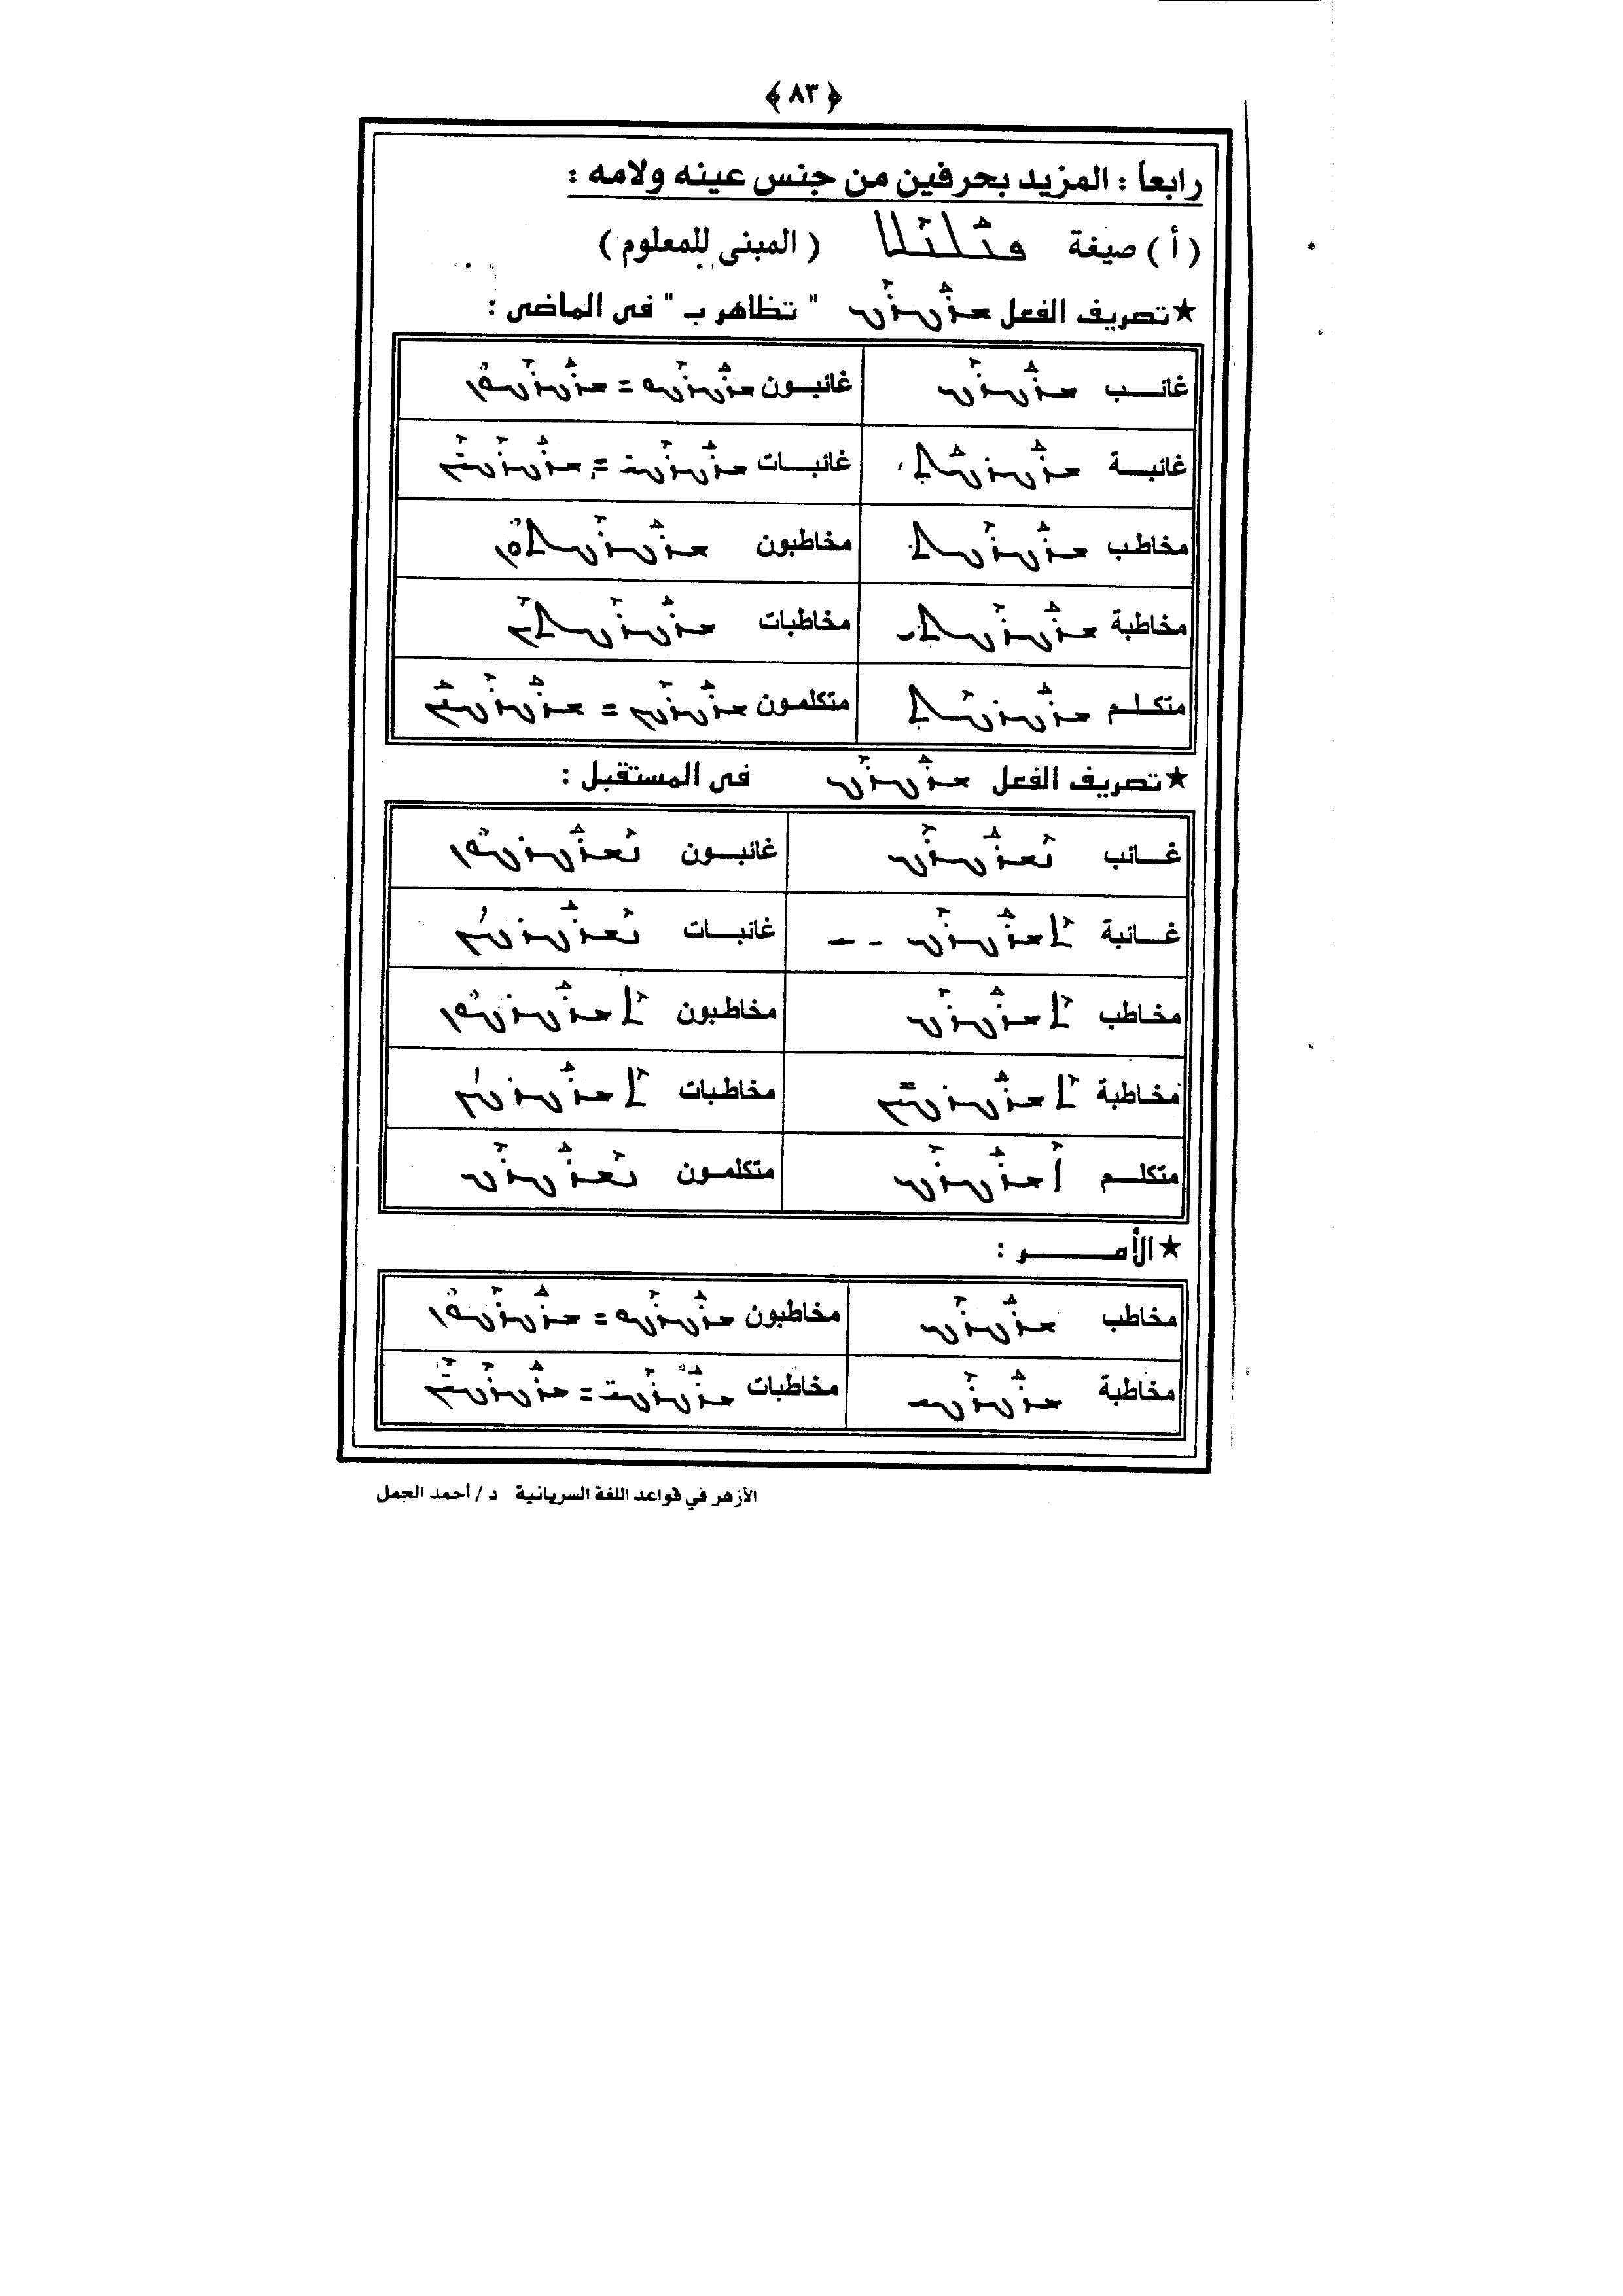 ﴿ ٨٣ ﴾
رابعاً : المزيد بحرفين من جنس عينه ولامه :
( أ ) صيغة ܦܥܠܥܠ ( المبنى للمعلوم )
★ تصريف الفعل ܫܪܓܪܓ " تظاهر ب " فى الماضى :
غائب ܫܪܓܪܓ غائبون ܫܪܓܪܓܘ = ܫܪܓܪܓܘܢ
غائبة ܫܪܓܪܓܬ غائبات ܫܪܓܪܓܝ = ܫܪܓܪܓܝܢ
مخاطب ܫܪܓܪܓܬ مخاطبون ܫܪܓܪܓܬܘܢ
مخاطبة ܫܪܓܪܓܬܝ مخاطبات ܫܪܓܪܓܬܝܢ
متكلم ܫܪܓܪܓܬ متكلمون ܫܪܓܪܓܢ = ܫܪܓܪܓܢܢ
★ تصريف الفعل ܫܪܓܪܓ فى المستقبل :
غائب ܢܫܪܓܪܓ غائبون ܢܫܪܓܪܓܘܢ
غائبة ܬܫܪܓܪܓ غائبات ܢܫܪܓܪܓܢ
مخاطب ܬܫܪܓܪܓ مخاطبون ܬܫܪܓܪܓܘܢ
مخاطبة ܬܫܪܓܪܓܝܢ مخاطبات ܬܫܪܓܪܓܢ
متكلم ܐܫܪܓܪܓ متكلمون ܢܫܪܓܪܓ
★ الأمر :
مخاطب ܫܪܓܪܓ مخاطبون ܫܪܓܪܓܘ = ܫܪܓܪܓܘܢ
مخاطبة ܫܪܓܪܓܝ مخاطبات ܫܪܓܪܓܝ = ܫܪܓܪܓܝܢ
الأزهر في قواعد اللغة السريانية د / أحمد الجمل